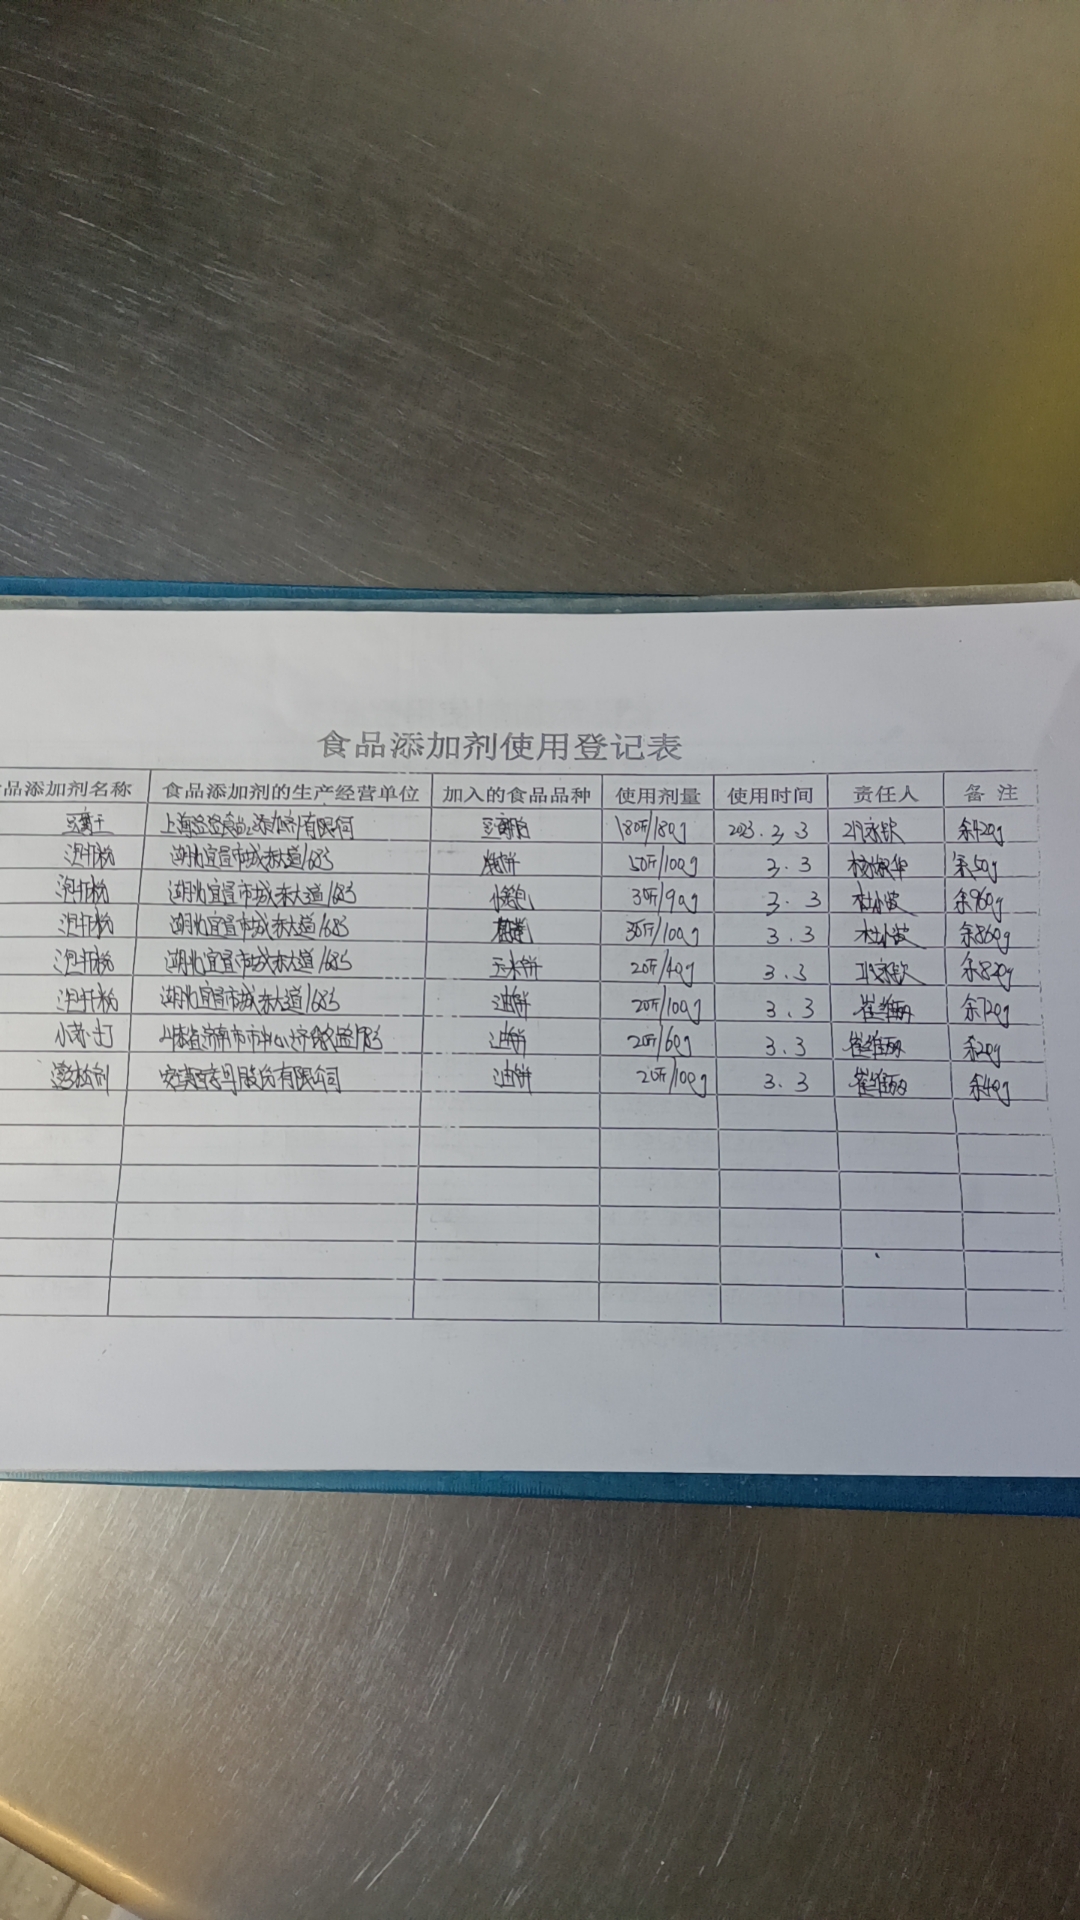 食品添加剂使用登记表
品添加剂名称 食品添加剂的生产经营单位 加入的食品品种 使用剂量 使用时间 责任人 备注
上海 添加剂有限公司 180斤/180g 2023.3.3 余420g
泡打粉 湖北宜昌市城东大道168号 烧饼 50斤/100g 3.3 余50g
泡打粉 湖北宜昌市城东大道168号 3斤/90g 3.3 杜小波 余960g
泡打粉 湖北宜昌市城东大道168号 3.3 杜小波 余860g
泡打粉 湖北宜昌市城东大道168号 玉米饼 20斤/40g 3.3 余820g
泡打粉 湖北宜昌市城东大道168号 油饼 20斤/100g 3.3 崔维丽 余720g
小苏打 油饼 20斤/60g 3.3 崔维丽 余20g
蓬松剂 安琪酵母股份有限公司 油饼 20斤/100g 3.3 崔维丽 余40g